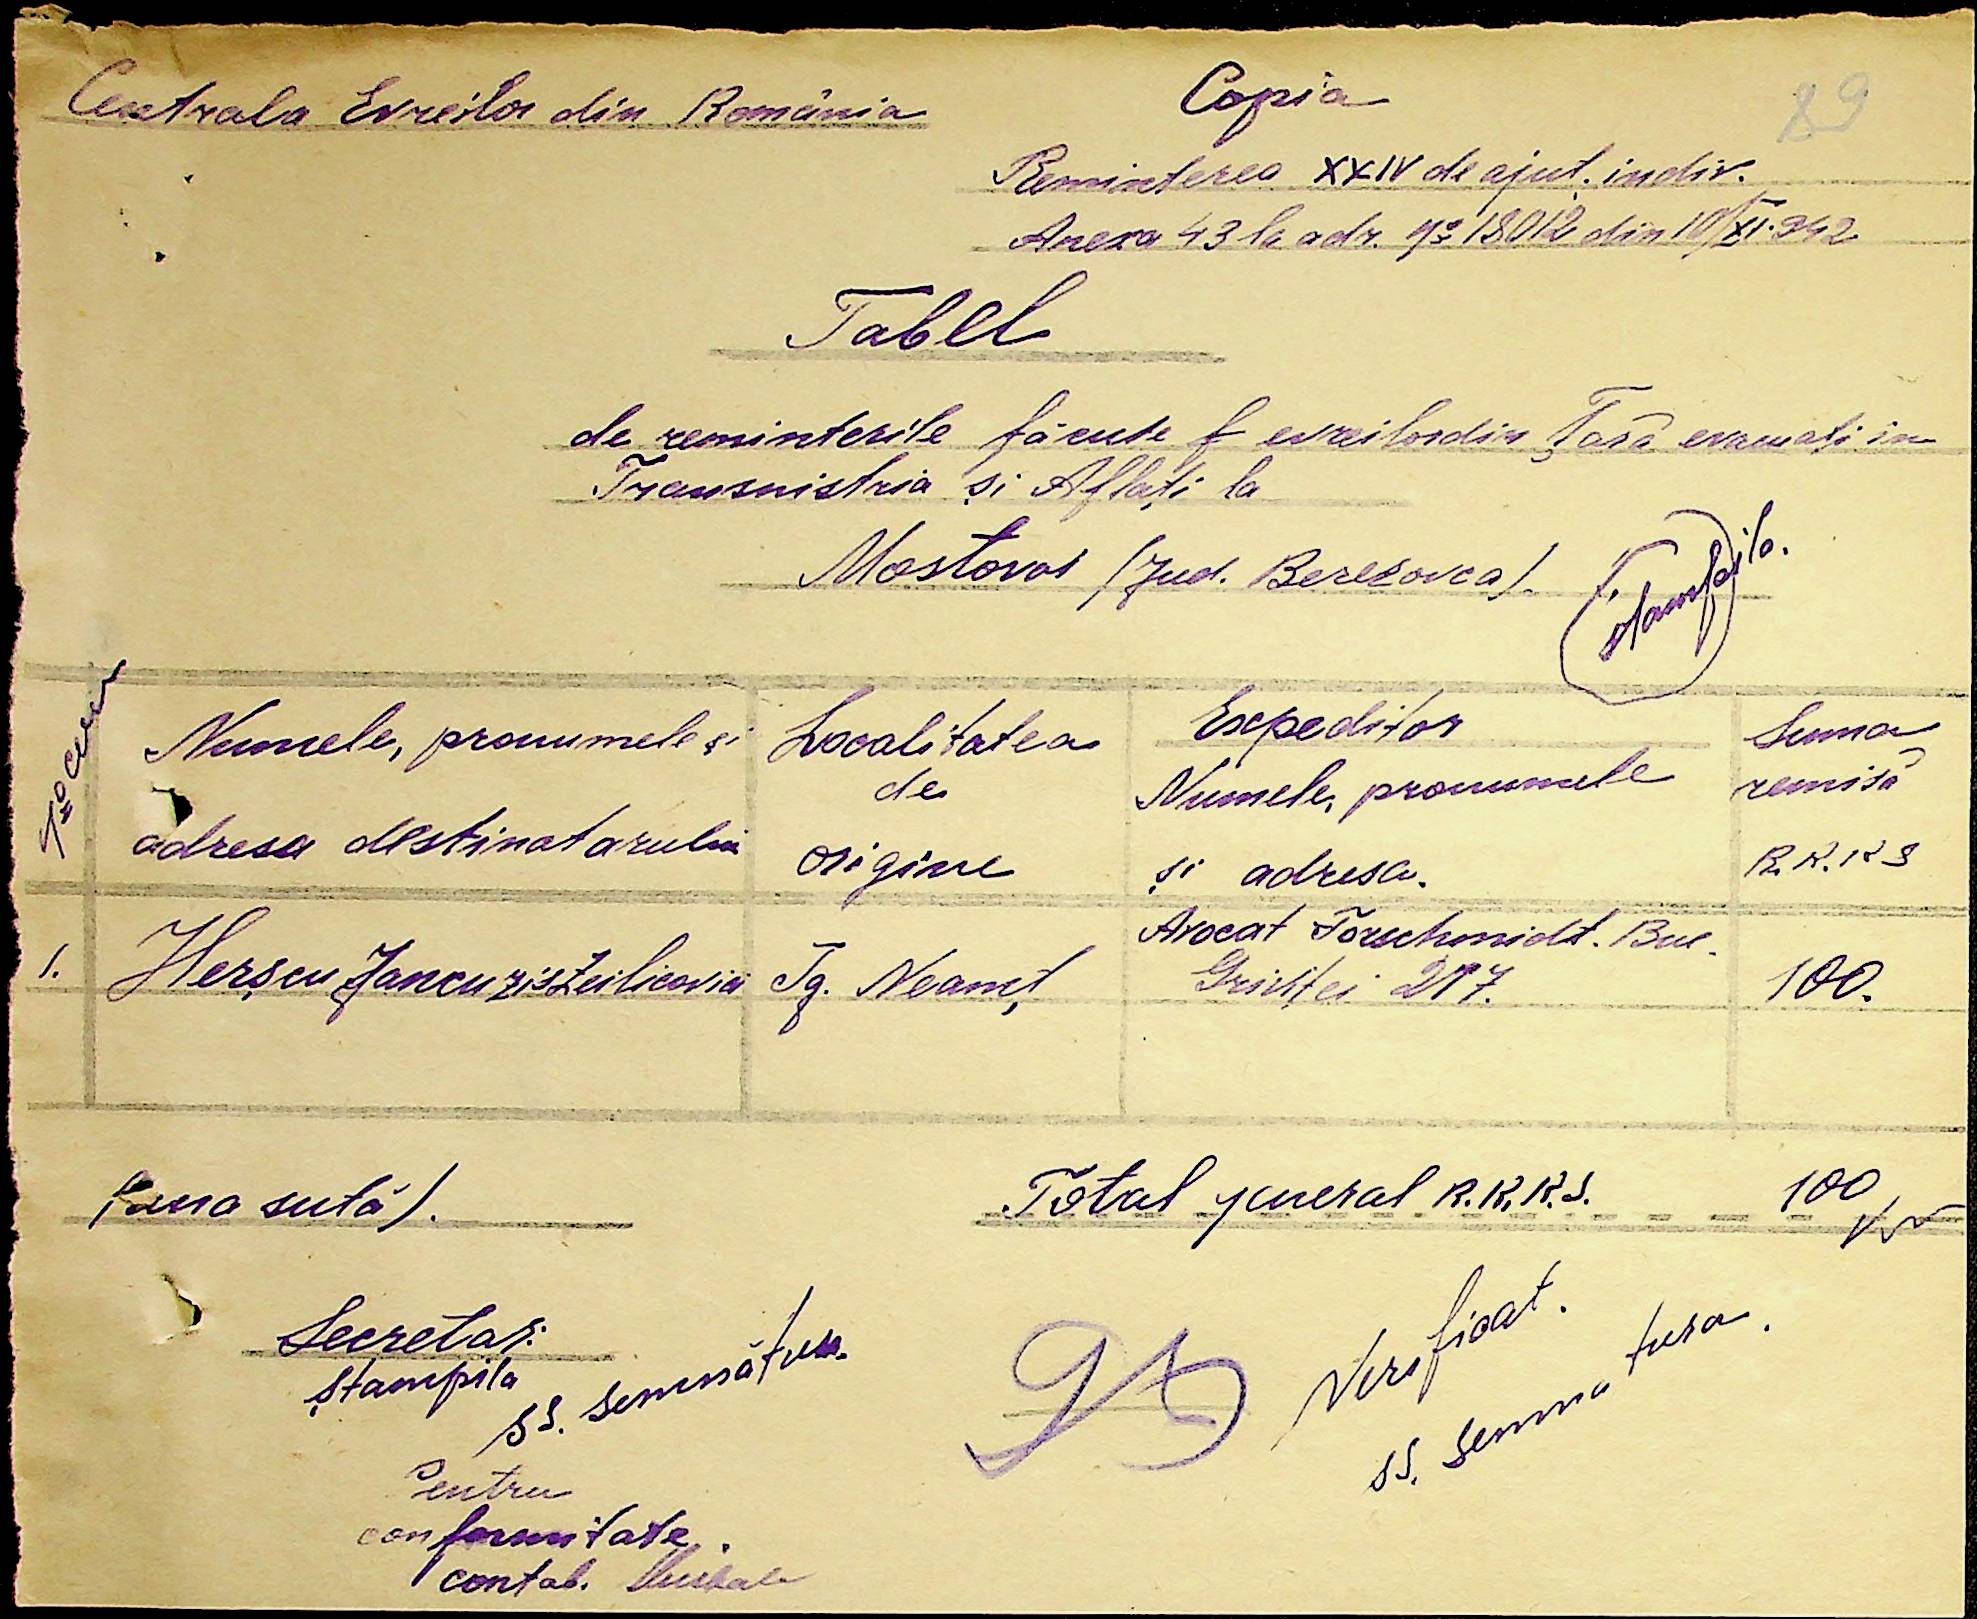 Centrala Evreilor din România
Copia
89
Remiterea XXIV de ajut. indiv.
Anexa 43 la adr. No 18012 din 10/XI.942
Tabel
de reminterile făcute f evreilor din Țară evacuați in
Transnistria și Aflați la
Mostovoi (Jud. Berezovca).
Ștampila.
No curen
Numele, pronumele și
adresa destinatarului
Localitatea
de
origine
Expeditor
Numele, pronumele
și adresa.
Suma
remisă
R.K.K.S
1.
Herșcu Jancu zis Zeilicovici
Tg. Neamț
Avocat Torschmidt. Buc.
Griviței 217.
100.
(una sută).
Total general R.K.K.S.
100
Secretar.
Ștampila
ss. semnătura.
Verificat.
ss. Semnatura.
Pentru
conformitate.
contab.